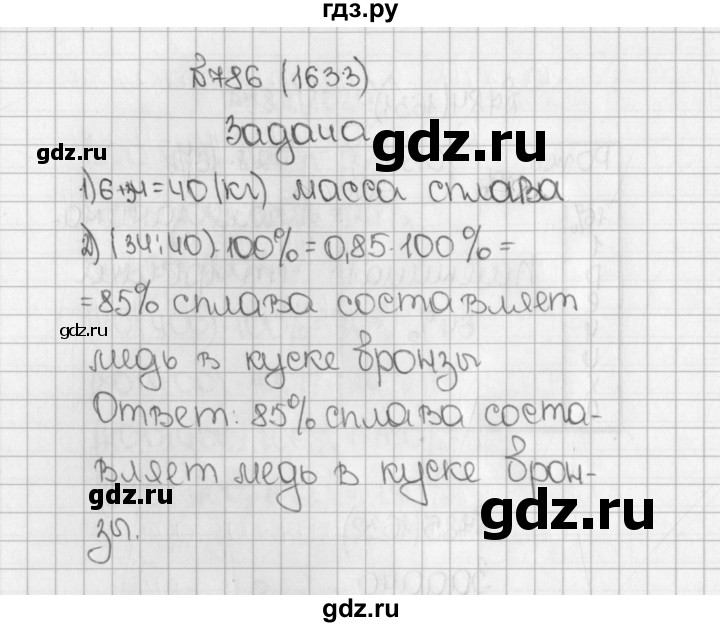 гдз.ру
№786 (1633)
Задача
gdz.ru
gdz.ru
1) 6+34=40 (кг) масса сплава
2) (34:40)·100%=0,85·100%=
=85% сплава составляет
gdz.ru
медь в куске бронзы
Ответ: 85% сплава соста-
вляет медь в куске брон-
gdz.ru
gdz.ru
зы.
gdz.ru